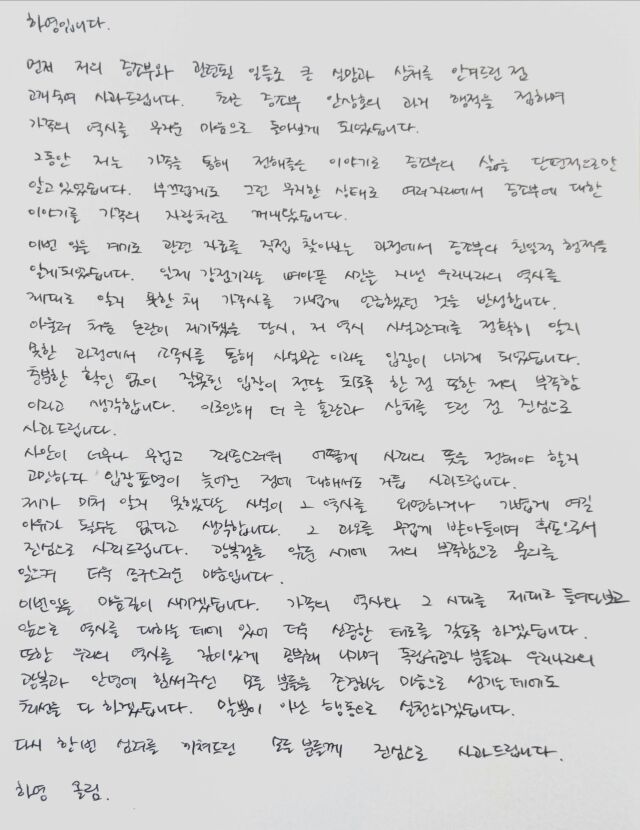 하영입니다.
먼저 저의 증조부와 관련된 일들로 큰 실망과 상처를 안겨드린 점
고개숙여 사과드립니다. 최근 증조부 안상호의 과거 행적을 접하며
가족의 역사를 무거운 마음으로 돌아보게 되었습니다.
그동안 저는 가족을 통해 전해들은 이야기로 증조부의 삶을 단편적으로만
알고있었습니다. 부끄럽게도 그런 무지한 상태로 여러자리에서 증조부에 대한
이야기를 가족의 자랑처럼 꺼내었습니다.
이번 일을 계기로 관련 자료를 직접 찾아보는 과정에서 증조부의 친일적 행적을
알게되었습니다. 일제 강점기라는 뼈아픈 시간을 지닌 우리나라의 역사를
제대로 알지 못한 채 가족사를 가볍게 언급했던 것을 반성합니다.
아울러 처음 논란이 제기됐을 당시, 저 역시 사실관계를 정확히 알지
못한 과정에서 소속사를 통해 사실무근 이라는 입장이 나가게 되었습니다.
충분한 확인 없이 잘못된 입장이 전달 되도록 한 점 또한 저의 부족함
이라고 생각합니다. 이로인해 더 큰 혼란과 상처를 드린 점 진심으로
사과드립니다.
사안이 너무나 무겁고 죄송스러워 어떻게 사죄의 뜻을 전해야 할지
고민하다 입장표명이 늦어진 점에 대해서도 거듭 사과드립니다.
제가 미처 알지 못했다는 사실이 그 역사를 외면하거나 가볍게 여길
이유가 될수는 없다고 생각합니다. 그 과오를 무겁게 받아들이며 후손으로서
진심으로 사죄드립니다. 광복절을 앞둔 시기에 저의 부족함으로 물의를
일으켜 더욱 송구스러운 마음입니다.
이번일을 마음깊이 새기겠습니다. 가족의 역사와 그 시대를 제대로 들여다보고
앞으로 역사를 대하는 데에 있어 더욱 신중한 태도를 갖도록 하겠습니다.
또한 우리의 역사를 깊이있게 공부해 나가며 독립유공자 분들과 우리나라의
광복과 안녕에 힘써주신 모든 분들을 존경하는 마음으로 섬기는데에도
최선을 다 하겠습니다. 말뿐이 아닌 행동으로 실천하겠습니다.
다시 한번 심려를 끼쳐드린 모든 분들께 진심으로 사과드립니다.
하영 올림.